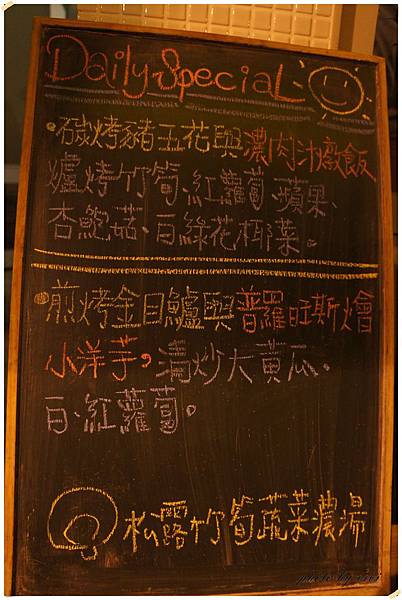 Daily Special
·碳烤豬五花與濃肉汁燉飯
爐烤竹筍、紅蘿蔔、蘋果、
杏鮑菇、白綠花椰菜。
·煎烤金目鱸與普羅旺斯燴
小洋芋。清炒大黃瓜。
白、紅蘿蔔。
松露竹筍蔬菜濃湯